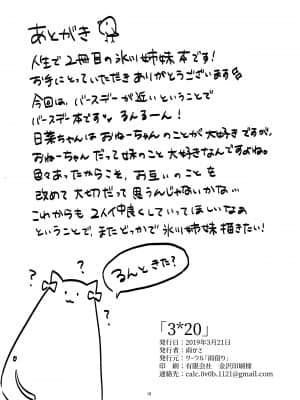 あとがき
人生で2冊目の氷川姉妹本です!
お手にとっていただきありがとうございます
今回は、バースデーが近いということで
バースデー本です るんるーん!
日菜ちゃんはおねーちゃんのことが大好きですが、
おねーちゃんだって妹のこと大好きなんですよね。
色々あったからこそ、お互いのことを
改めて大切だって思うんじゃないかな…
これからも2人仲良くしていってほしいなぁ
ということで、またどっかで氷川姉妹描きたい!
? ? ?
るんときた?
?
「3*20」
発行日:2019年3月21日
発行者:雨
発行元:サークル「雨宿り」
印 刷:有限会社 金沢印刷様
連絡先:calc.0v0b.1121@gmail.com